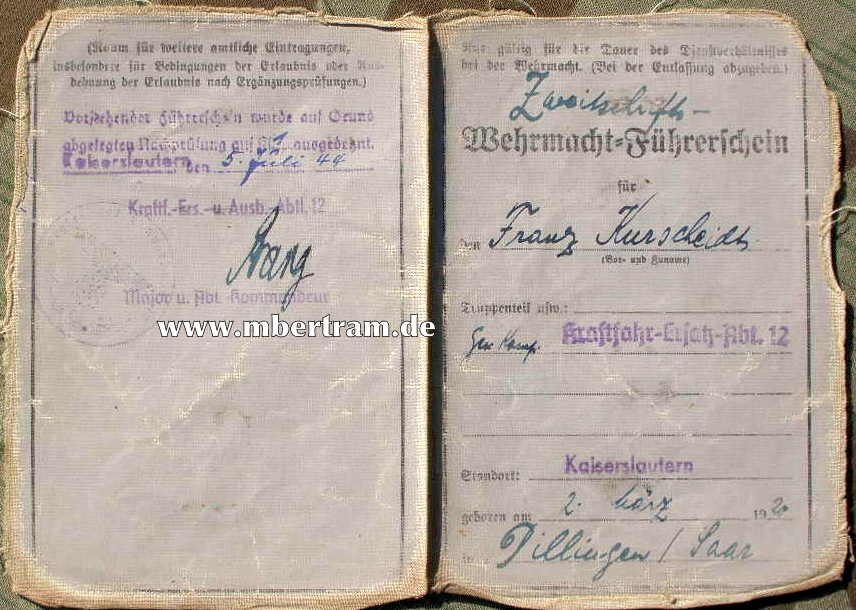 (Raum für weitere amtliche Eintragungen,
insbesondere für Bedingungen der Erlaubnis oder Aus-
dehnung der Erlaubnis nach Ergänzungsprüfungen.)
Vorstehender Führerschein wurde auf Grund
abgelegten Nachprüfung auf ausgedehnt.
Kaiserslautern den 5. Juli 44
Kraftf.-Ers.-u. Ausb.-Abtl. 12
Major u. Abt. Kommandeur
www.mbertram.de
Nur gültig für die Dauer des Dienstverhältnisses
bei der Wehrmacht. (Bei der Entlassung abzugeben.)
Zweitschrift-
Wehrmacht-Führerschein
für
den Franz Kurscheidt
(Vor- und Zuname)
Truppenteil usw.:
Gen Komp. Kraftfahr-Ersatz-Abt. 12
Standort: Kaiserslautern
geboren am 2. März 1920
in Dillingen / Saar